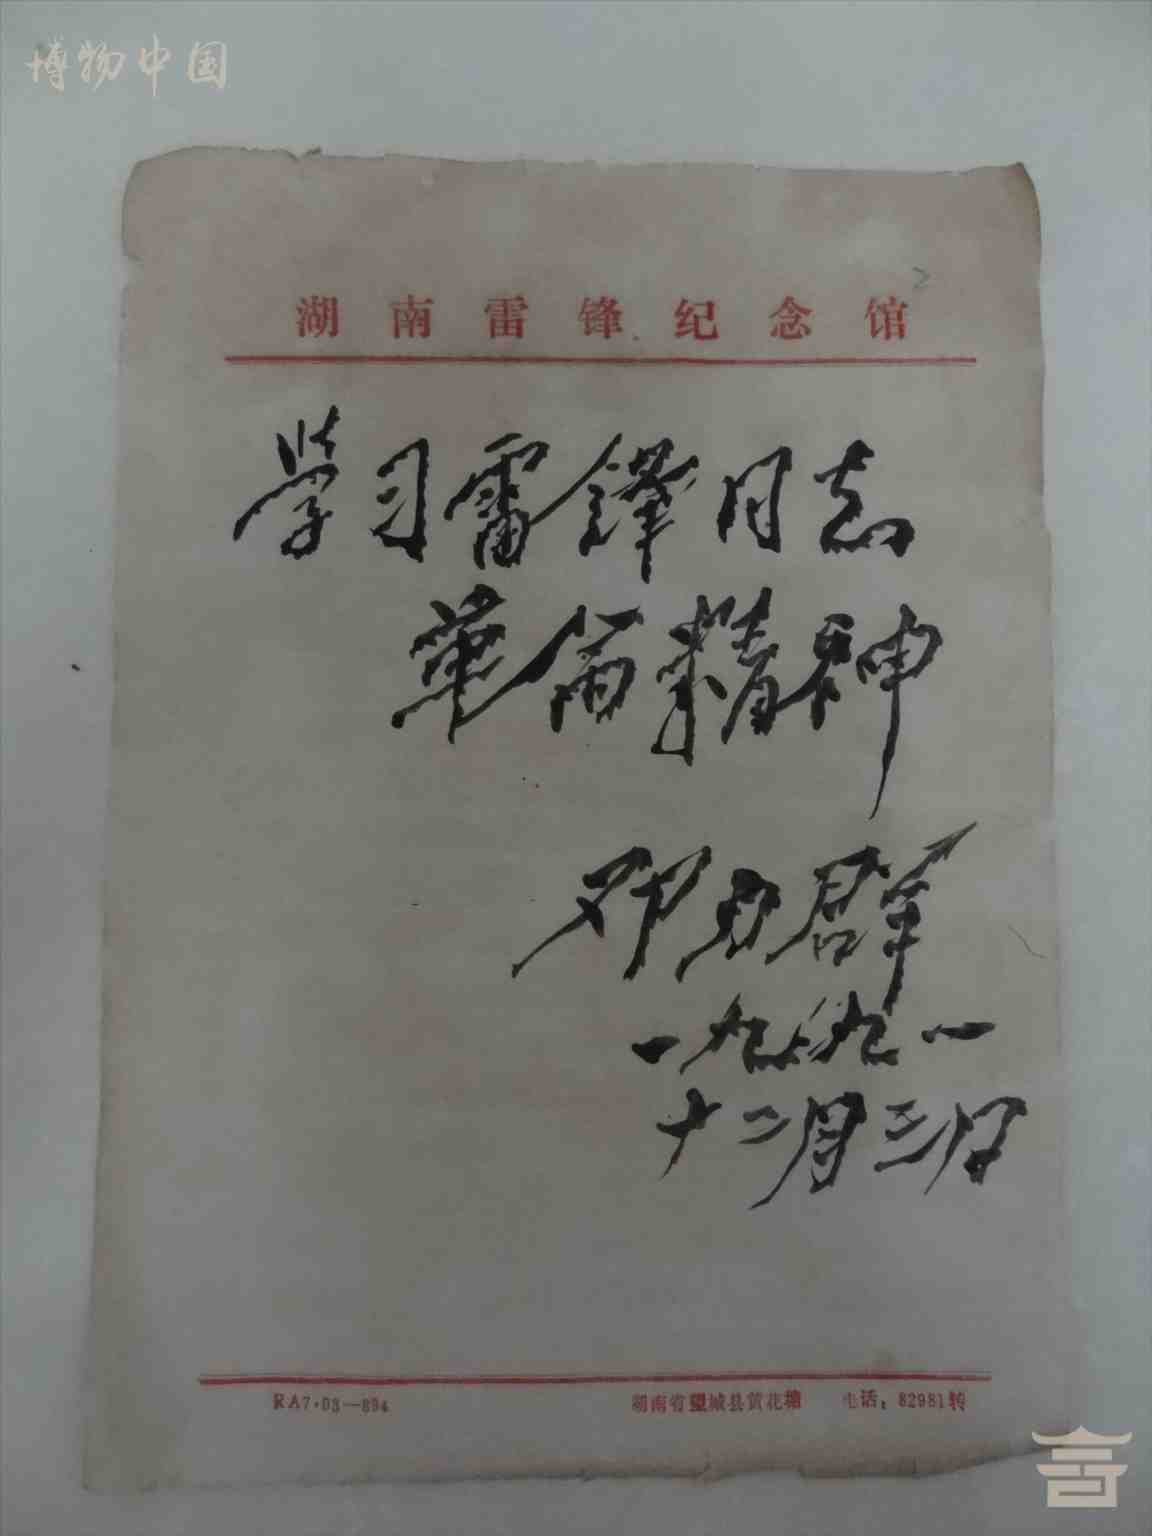 博物中国
湖南雷锋纪念馆
学习雷锋同志
革命精神
邓力群
一九九一
十二月三日
RA7·03—894
湖南省望城县黄花塘 电话:82981转